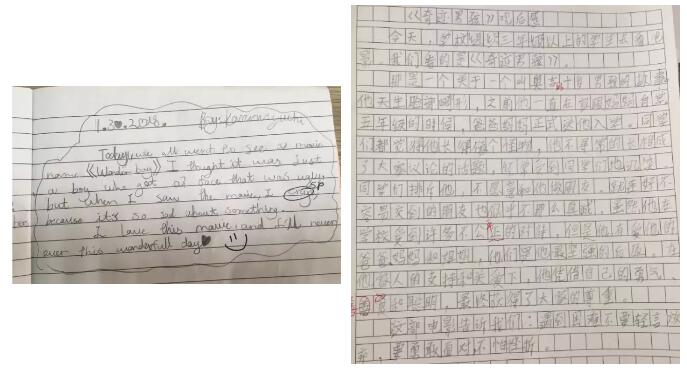 1.30.2018. By: Kaminaguchi
Today, we all went to see a movie
name 《Wonder boy》 I thought it was just
a boy who got a face that was ugly
but when I saw the movie, I
sp
because it's so sad about something.
I love this movie and I'll never
ever this wonderfull day
《奇迹男孩》观后感
今天，学校组织三年级以上的学生去看电
影。我们看的是《奇迹男孩》。
那是一个关于一个叫奥吉 男孩的故事。
他天生脸部畸形，之前他一直在家跟妈妈自学。
五年级的时候，爸爸妈妈正式送他入学。同学
们都觉得他长得像个怪物，他不寻常的长相成
了大家议论的话题，好多
同学们排斥他，不愿意和他做朋友。
容易交到的朋友 。虽然他在
学校受到许多不公 的对待，但是他有爱他的
爸爸妈妈和姐姐，他们是他最坚强的后盾。在
他家人的支持和关爱下，他凭借自己的勇气、
和聪明，最终获得了大家的尊重。
这部电影告诉我们：遇到困难不要轻言放
弃，要勇敢面对，不怕挫折。